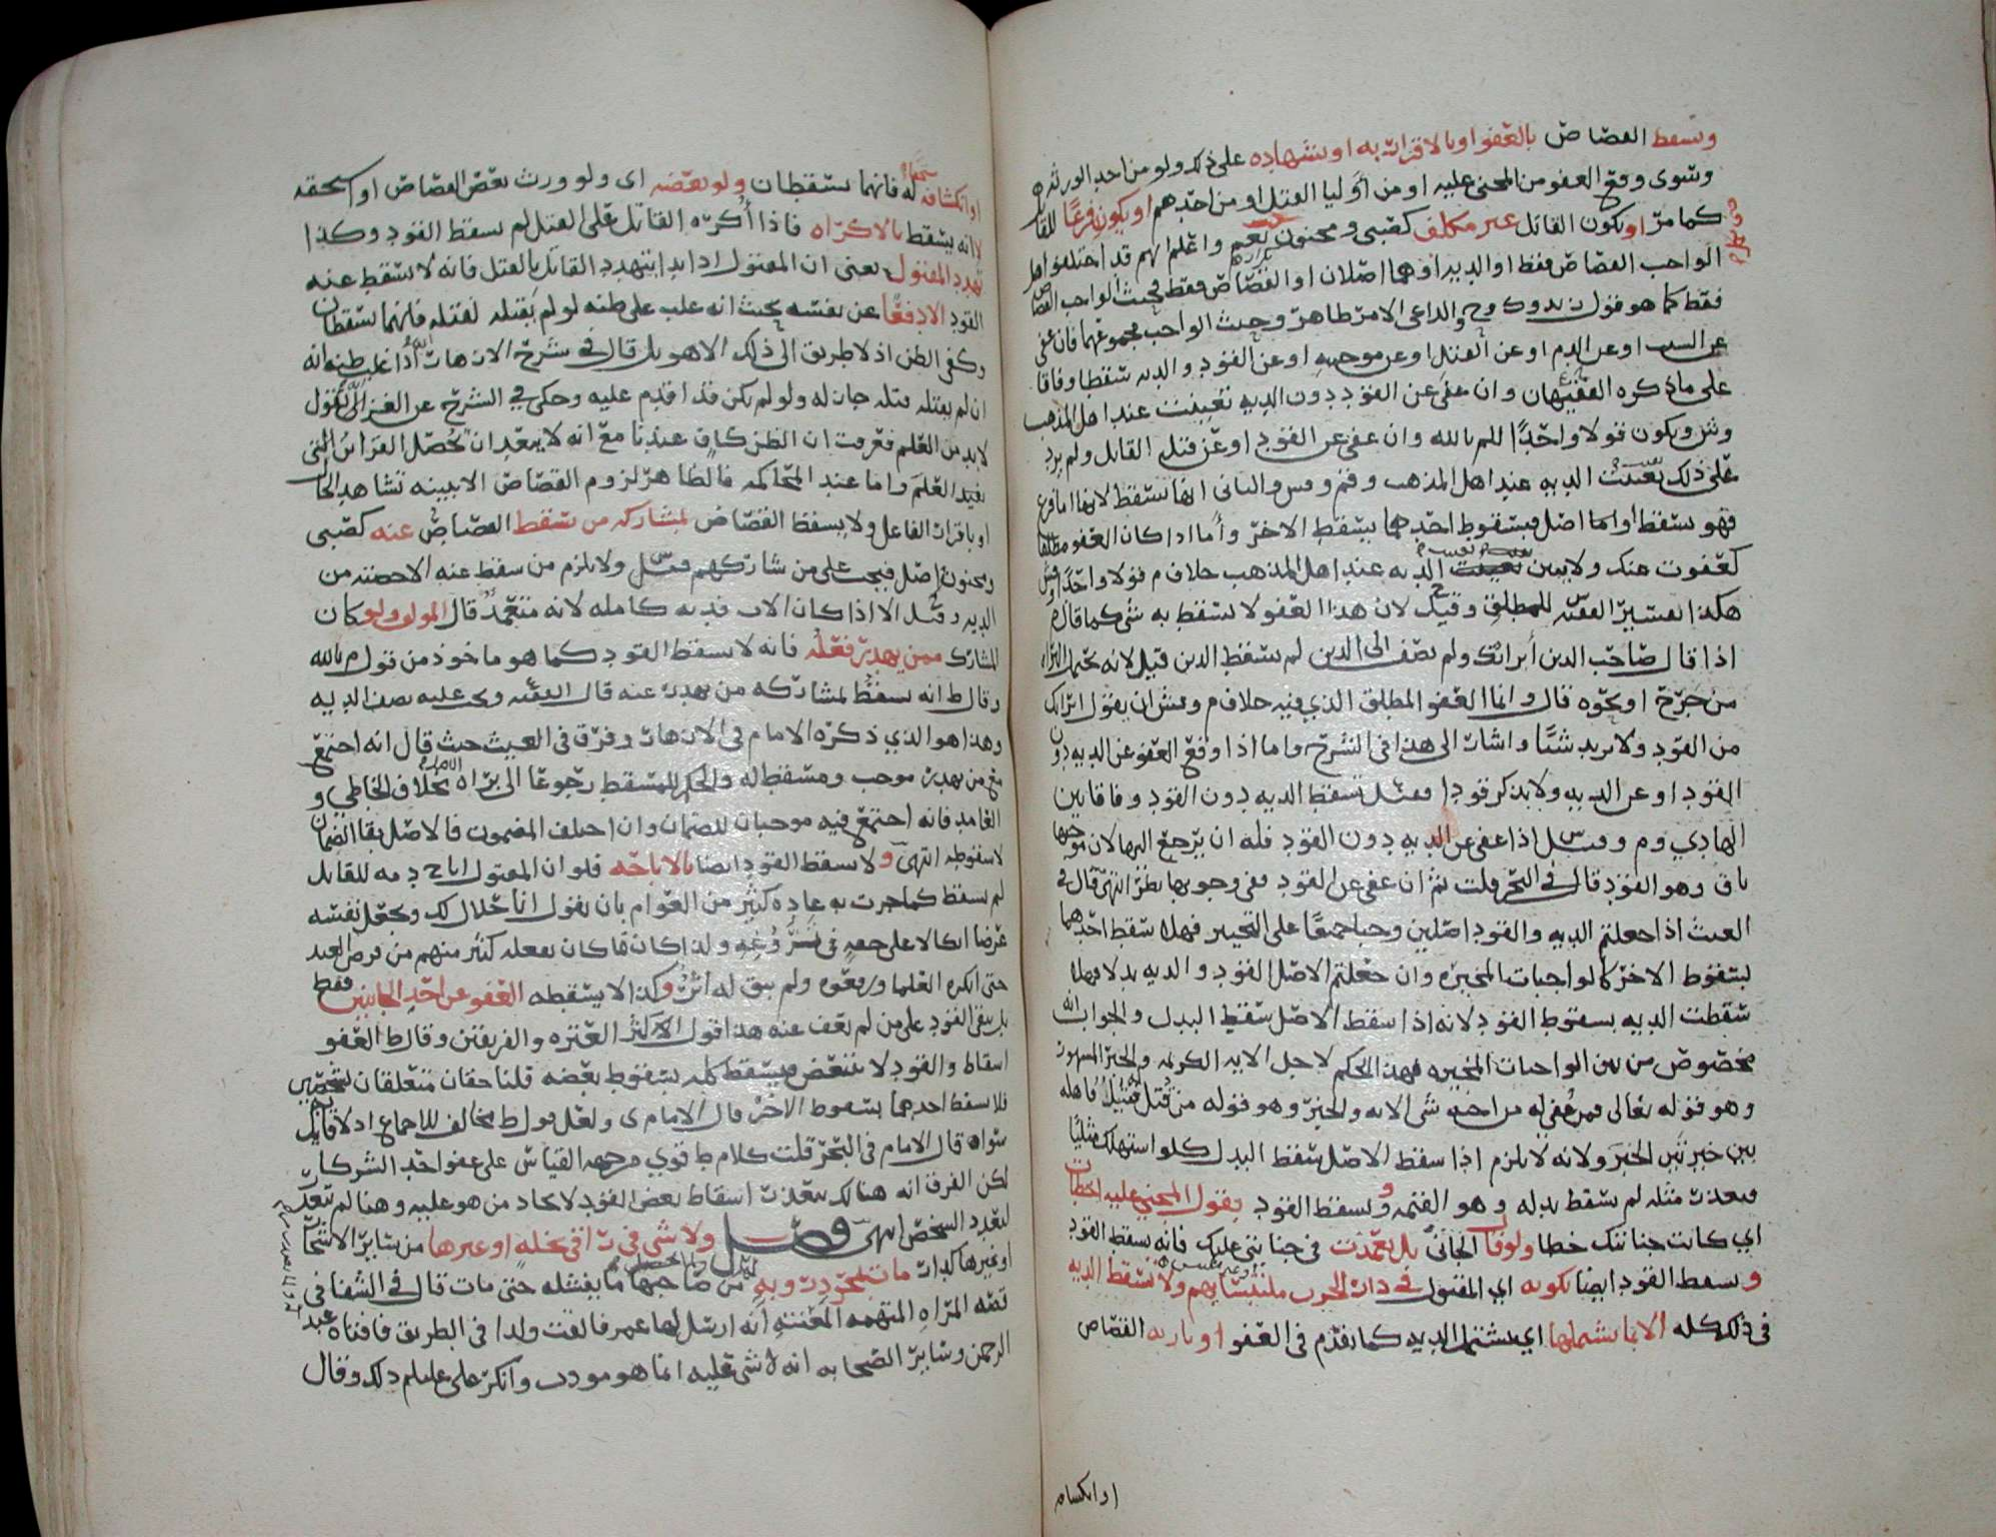 ويسقط القصاص بالعفو او بالاقرار به او بشهاده على ذلك ولو من احد الورثه
وسوى وقع العفو من المجني عليه او من أوليا القتل او من احدهم او يكون فرعًا للقا
كما مر او يكون القاتل غير مكلف كصبي ومجنون نعم واعلم انهم قد اختلفوا هل
الواجب القصاص فقط او الديه او هما اصلان او القصاص فقط فحيث الواجب القصاص
فقط كما هو قول ن ود وك وح والداعي الامر ظاهر وحيث الواجب مجموعهما فان عفى
عن السبب او عن الدم او عن القتل او عن موجبه او عن القود والديه سقطا وفاقا
على ما ذكره الفقيهان وان عفى عن القود دون الديه تعينت عند اهل المذهب
وش ويكون قولا واحدًا للم بالله وان عفى عن القود او عن قتل القاتل ولم يزد
على ذلك تعينت الديه عند اهل المذهب والثاني انها تسقط لانها اما فرع
فهو يسقط او اما اصل فبسقوط احدهما يسقط الاخر وأما اذا كان العفو مطلقا
كعفوت عنك ولا يبين الديه عند اهل المذهب خلاف م قولا واحدًا وش
هكذا تفسير الفقيه للمطلق وقيل لان هذا العفو لا يسقط به شي كما قال م
اذا قال صاحب الدين أبرأتك ولم يضف الى الدين لم يسقط الدين قيل لانه يحتمل البراه
من جرح او نحوه قال وانما العفو المطلق الذي فيه خلاف م وش ان يقول ابراتك
من القود ولا يريد شيًا واشار الى هذا في الشرح واما اذا وقع العفو عن الديه دون
القود او عن الديه ولا يذكر قودا فقيل تسقط الديه دون القود وفاقا بين
الهادي وم وقيل اذا عفى عن الديه دون القود فله ان يرجع اليها لان موجبها
باق وهو القود قال في البحر قلت ثم ان عفى عن القود ففي وجوبها نظر انتهى قال في
الغيث اذا جعلتم الديه والقود اصلين وجبا جميعًا على التخيير فهلا سقط احدهما
بسقوط الاخر كالواجبات المخيره وان جعلتم الاصل القود والديه بدلا فهلا
سقطت الديه بسقوط القود لانه اذا سقط الاصل سقط البدل والجواب انه
مخصوص من بين الواجبات المخيره فهذا الحكم لاجل الايه الكريمه والخبر المشهور
وهو قوله تعالى فمن عفي له من اخيه شي الايه والخبر وهو قوله من قتل قتيل فاهله
بين خيرتين الخبر ولانه لا يلزم اذا سقط الاصل سقط البدل كلو استهلك مثليًا
فتعذر مثله لم يسقط بدله وهو القيمه ويسقط القود بقول المجني عليه اخطات
اي كانت جنايتك خطا ولو قال الجاني بل تعمدت في جنايتي عليك فانه يسقط القود
ويسقط القود ايضا بكونه اي المقتول في دار الحرب ملتبسا بهم ولا تسقط الديه
في ذلك كله الا بما يشملها اي يشتمل الديه كما تقدم في العفو او بارثه القصاص
او انكشافه
او انكشافه له فانهما يسقطان ولو بعضه اى ولو ورث بعض القصاص او استحقه
لا انه يسقط بالاكراه فاذا أكره القاتل على القتل لم يسقط القود وكذا
تهدد المقتول يعني ان المقتول اذا ابتدا بتهدد القاتل بالقتل فانه لا يسقط عنه
القود الا دفعًا عن نفسه بحيث انه غلب على ظنه لو لم يقتله لقتله فانهما يسقطان
وكفى الظن اذ لا طريق الى ذلك الا هو بل قال في شرح الازهار اذا غلب ظنه انه
ان لم يقتله قتله جاز له ولو لم يكن قد اقدم عليه وحكى في الشرح عن الغزالي يقول
لا بد من العلم فعرفت ان الظن كاف عندنا مع انه لا يبعد ان تحصل القرائن التي
تفيد العلم واما عند المحاكمه فالظاهر لزوم القصاص الا ببينه تشاهد الحال
او باقرار الفاعل ولا يسقط القصاص بمشاركه من يسقط القصاص عنه كصبي
ومجنون اصل فيجب على من شاركهم قيل ولا يلزم من سقط عنه الا حصته من
الديه وقيل الا اذا كان الاب فديه كامله لانه متعمد قال المولف ولو كان
المشارك ممن يهدر فعله فانه لا يسقط القود كما هو ماخوذ من قول م بالله
وقال ط انه يسقط بمشاركه من يهدر عنه قال الفقيه ويجب عليه نصف الديه
وهذا هو الذي ذكره الامام في الازهار وفرق في الغيث حيث قال انه اجتمع
مع من يهدر موجب ومسقط له والحكم للمسقط رجوعًا الى براه بخلاف الخاطي و
العامد فانه اجتمع فيه موجبان للضمان وان اختلف المضمون فالاصل بقا الضمان
لا سقوطه انتهى ولا يسقط القود ايضا بالاباحه فلو ان المقتول اباح دمه للقاتل
لم يسقط كما جرت به عاده كثير من العوام بان يقول انا حلال لك ويجعل نفسه
غرضا اتكالا على جمعه ولذا كان ما كان يفعله كثير منهم من
حتى انكره العلما ورفعوه ولم يبق له أثر وكذا لا يسقطه العفو عن احد الجانيين فقط
بل يبقى القود على من لم يعف عنه هذا قول الاكثر العتره والفريقين وقال ط العفو
اسقاط والقود لا يتبعض فيسقط كله بسقوط بعضه قلنا حقان متعلقان بشخصين
فلا يسقط احدهما بسقوط الاخر قال الامام ى ولعل قول ط مخالف للاجماع اذ لا قايل
سواه قال الامام في البحر قلت كلام ط قوي وجهه القياس على عفو احد الشركا
لكن الفرق انه هنالك يتعذر اسقاط بعض القود لاتحاد من هو عليه وهنا لم يتعذر
لتعدد الشخص انتهى فصل ولا شي في راقي نخله او غيرها من ساير الاشجا
او غيرها كدار مات بالحدر وبه من صاحبها ما يقتله حتى مات قال في الشفا في
قصه المراه المتهمه المغنيه أنه ارسل لها عمر فالقت ولدا في الطريق فافتاه عبد
الرحمن وساير الصحابه انه لا شي عليه انما هو مودب وانكر على عليلم ذلك وقال